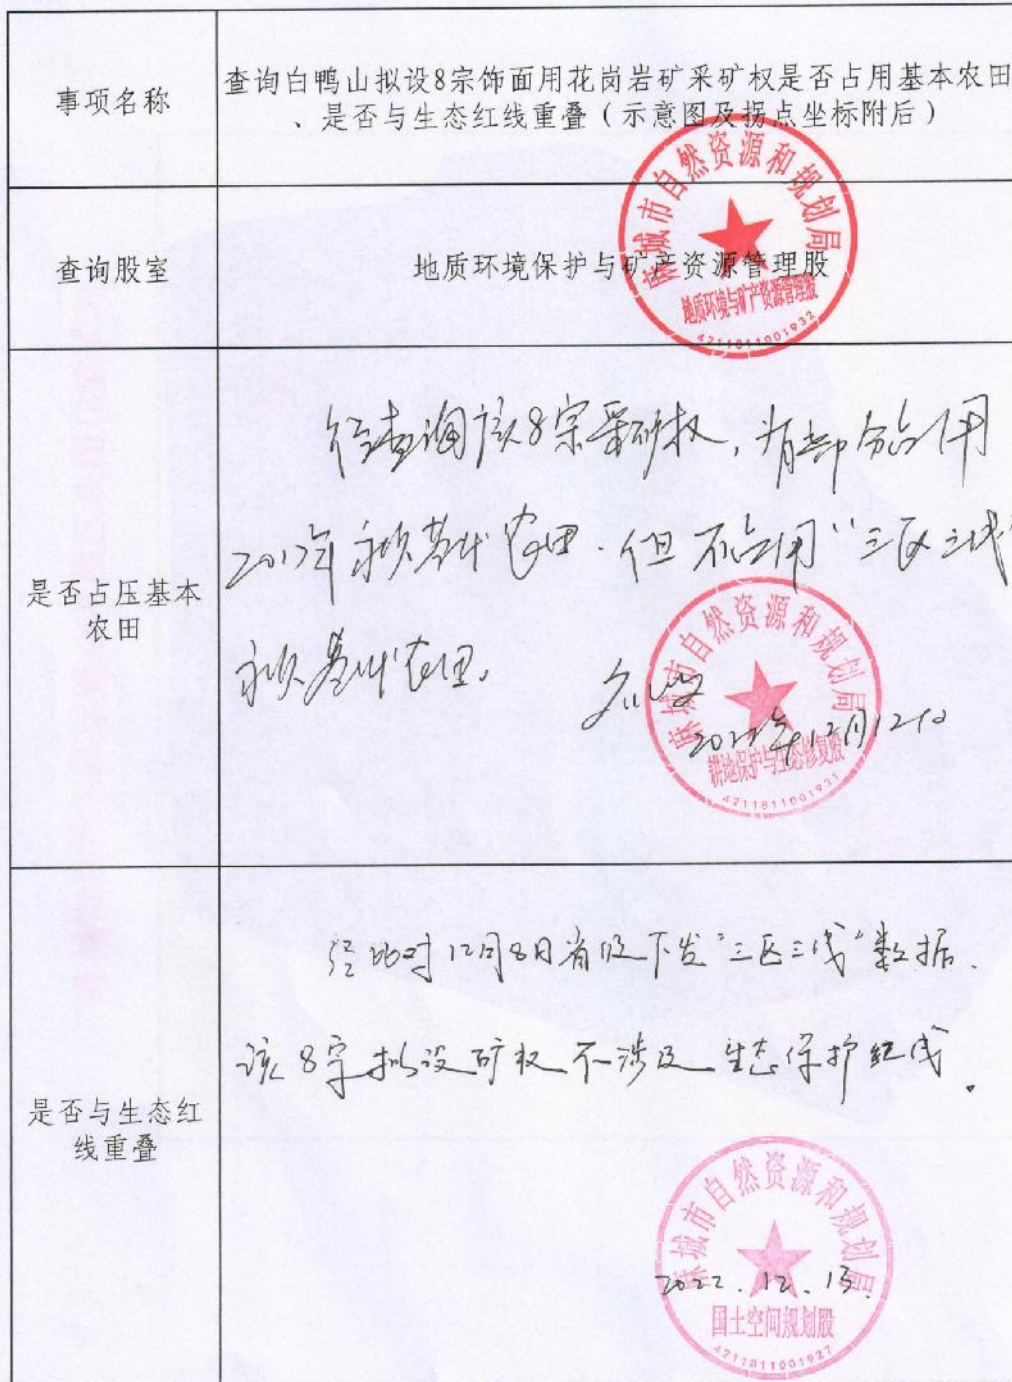 事项名称
查询白鸭山拟设8宗饰面用花岗岩矿采矿权是否占用基本农田
、是否与生态红线重叠（示意图及拐点坐标附后）
查询股室
地质环境保护与矿产资源管理股
麻城市自然资源和规划局
地质环境与矿产资源管理股
4211811001932
是否占压基本
农田
经查询该8宗采矿权，有部分占用
2017年永久基本农田.但不占用"三区三线"
永久基本农田。
2022年12月12日
麻城市自然资源和规划局
耕地保护与生态修复股
4211811001931
是否与生态红
线重叠
经比对12月8日省级下发"三区三线"数据.
该8宗拟设矿权不涉及生态保护红线。
麻城市自然资源和规划局
2022.12.13.
国土空间规划股
4211811001927